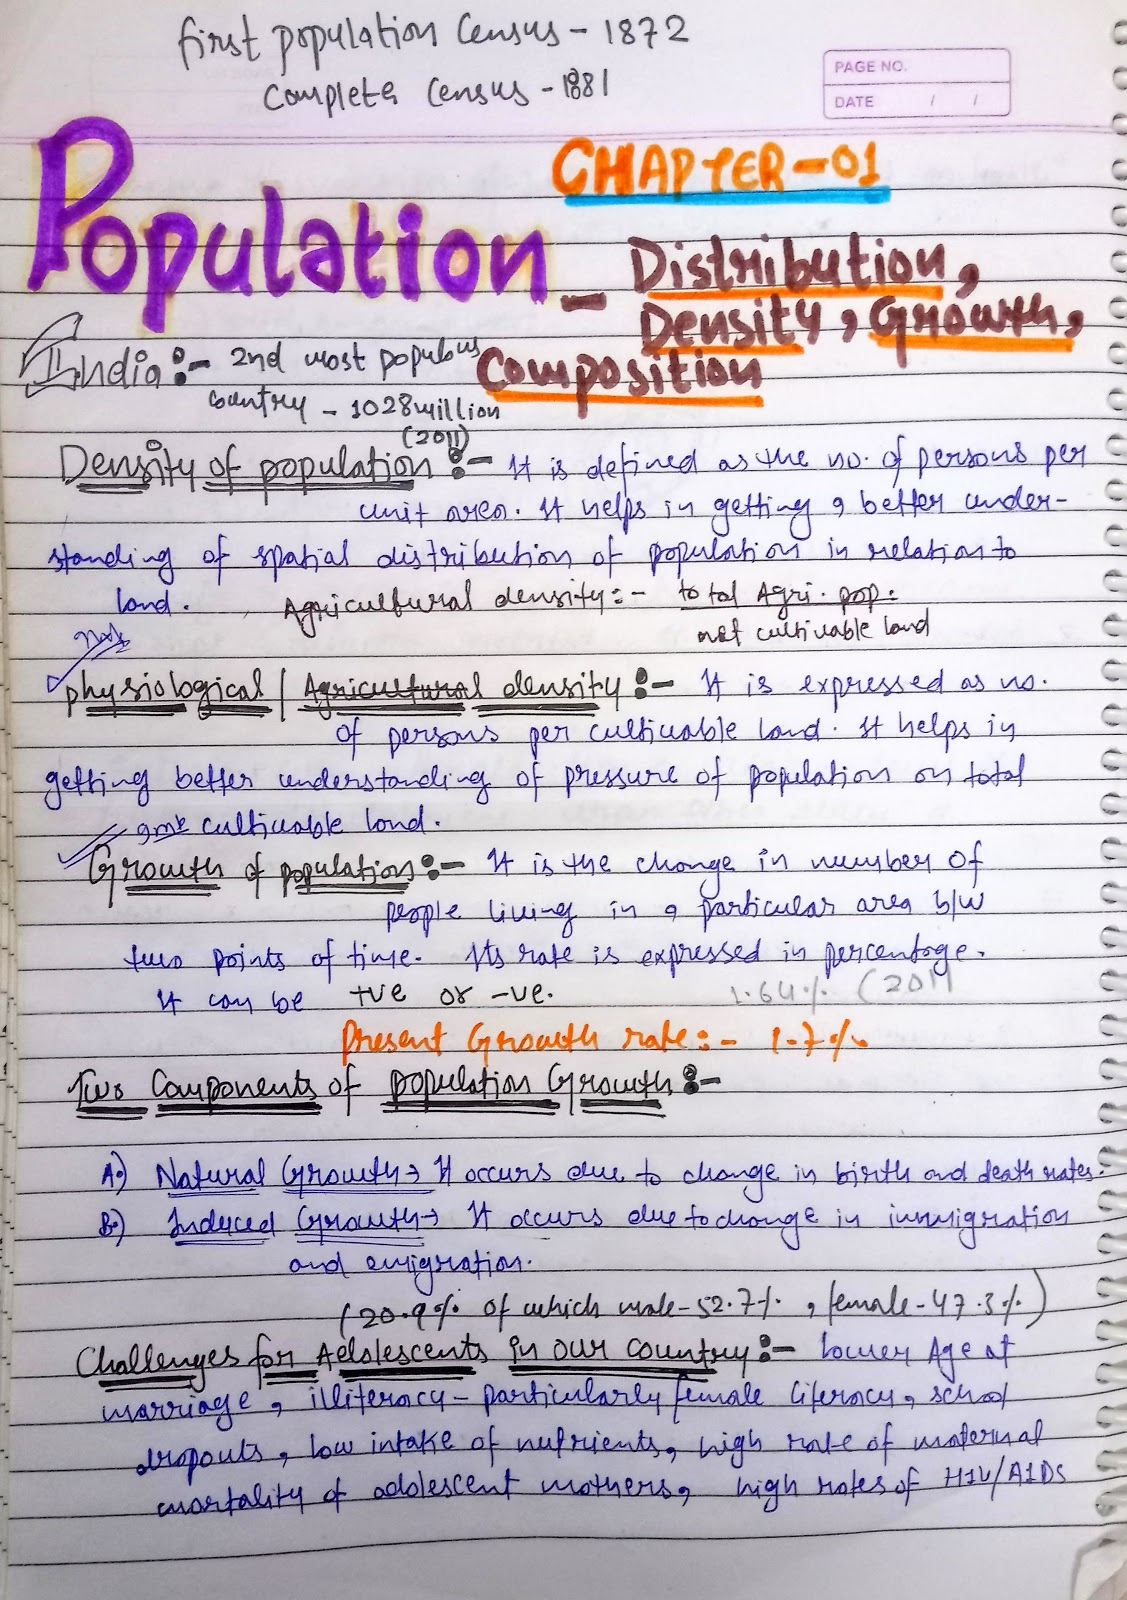 first population Census - 1872
Complete Census - 1881
PAGE NO.
DATE / /
CHAPTER-01
Population - Distribution,
Density, Growth,
Composition
India :- 2nd most populous
Country - 1028 million
(2011)
Density of population :- It is defined as the no. of persons per
unit area. It helps in getting a better under-
standing of spatial distribution of population in relation to
land. Agricultural density :- total Agri. pop.
net cultivable land
physiological / Agricultural density :- It is expressed as no.
of persons per cultivable land. It helps in
getting better understanding of pressure of population on total
cultivable land.
Growth of population :- It is the change in number of
people living in a particular area b/w
two points of time. Its rate is expressed in percentage.
It can be +ve or -ve. 1.64% (2011
Present Growth rate :- 1.7%
Two Components of population Growth :-
A.) Natural Growth → It occurs due to change in birth and death rates.
B.) Induced Growth → It occurs due to change in immigration
and emigration.
(20.9% of which male-52.7%, female-47.3%)
Challenges for Adolescents in our country :- Lower Age at
marriage, illiteracy - particularly female literacy, school
dropouts, low intake of nutrients, high rate of maternal
mortality of adolescent mothers, high rates of HIV/AIDS